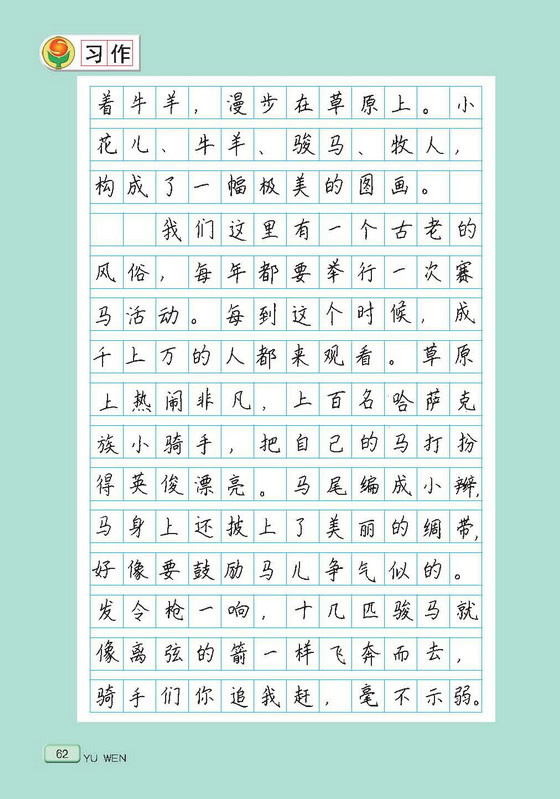 习作
着牛羊，漫步在草原上。小
花儿、牛羊、骏马、牧人，
构成了一幅极美的图画。
我们这里有一个古老的
风俗，每年都要举行一次赛
马活动。每到这个时候，成
千上万的人都来观看。草原
上热闹非凡，上百名哈萨克
族小骑手，把自己的马打扮
得英俊漂亮。马尾编成小辫，
马身上还披上了美丽的绸带，
好像要鼓励马儿争气似的。
发令枪一响，十几匹骏马就
像离弦的箭一样飞奔而去，
骑手们你追我赶，毫不示弱。
62
YU WEN